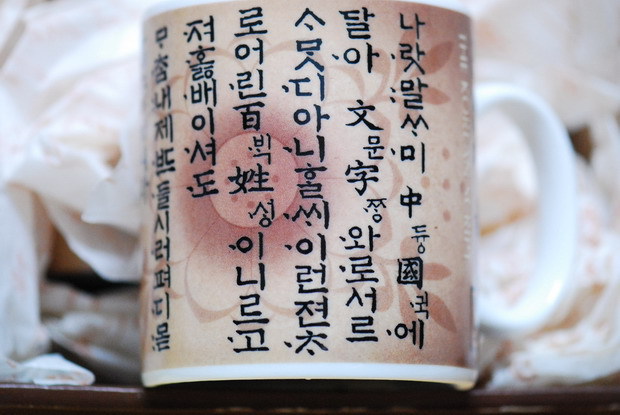 나랏말ᄊᆞ미 中듕國귁에
달아 文문字ᄍᆞᆼ와로서르
ᄉᆞᄆᆞᆺ디아니ᄒᆞᆯᄊᆡ이런젼ᄎᆞ
로어린百ᄇᆡᆨ姓셩이니르고
져홇배이셔도
ᄆᆞᄎᆞᆷ내제ᄠᅳ들시러펴디몯